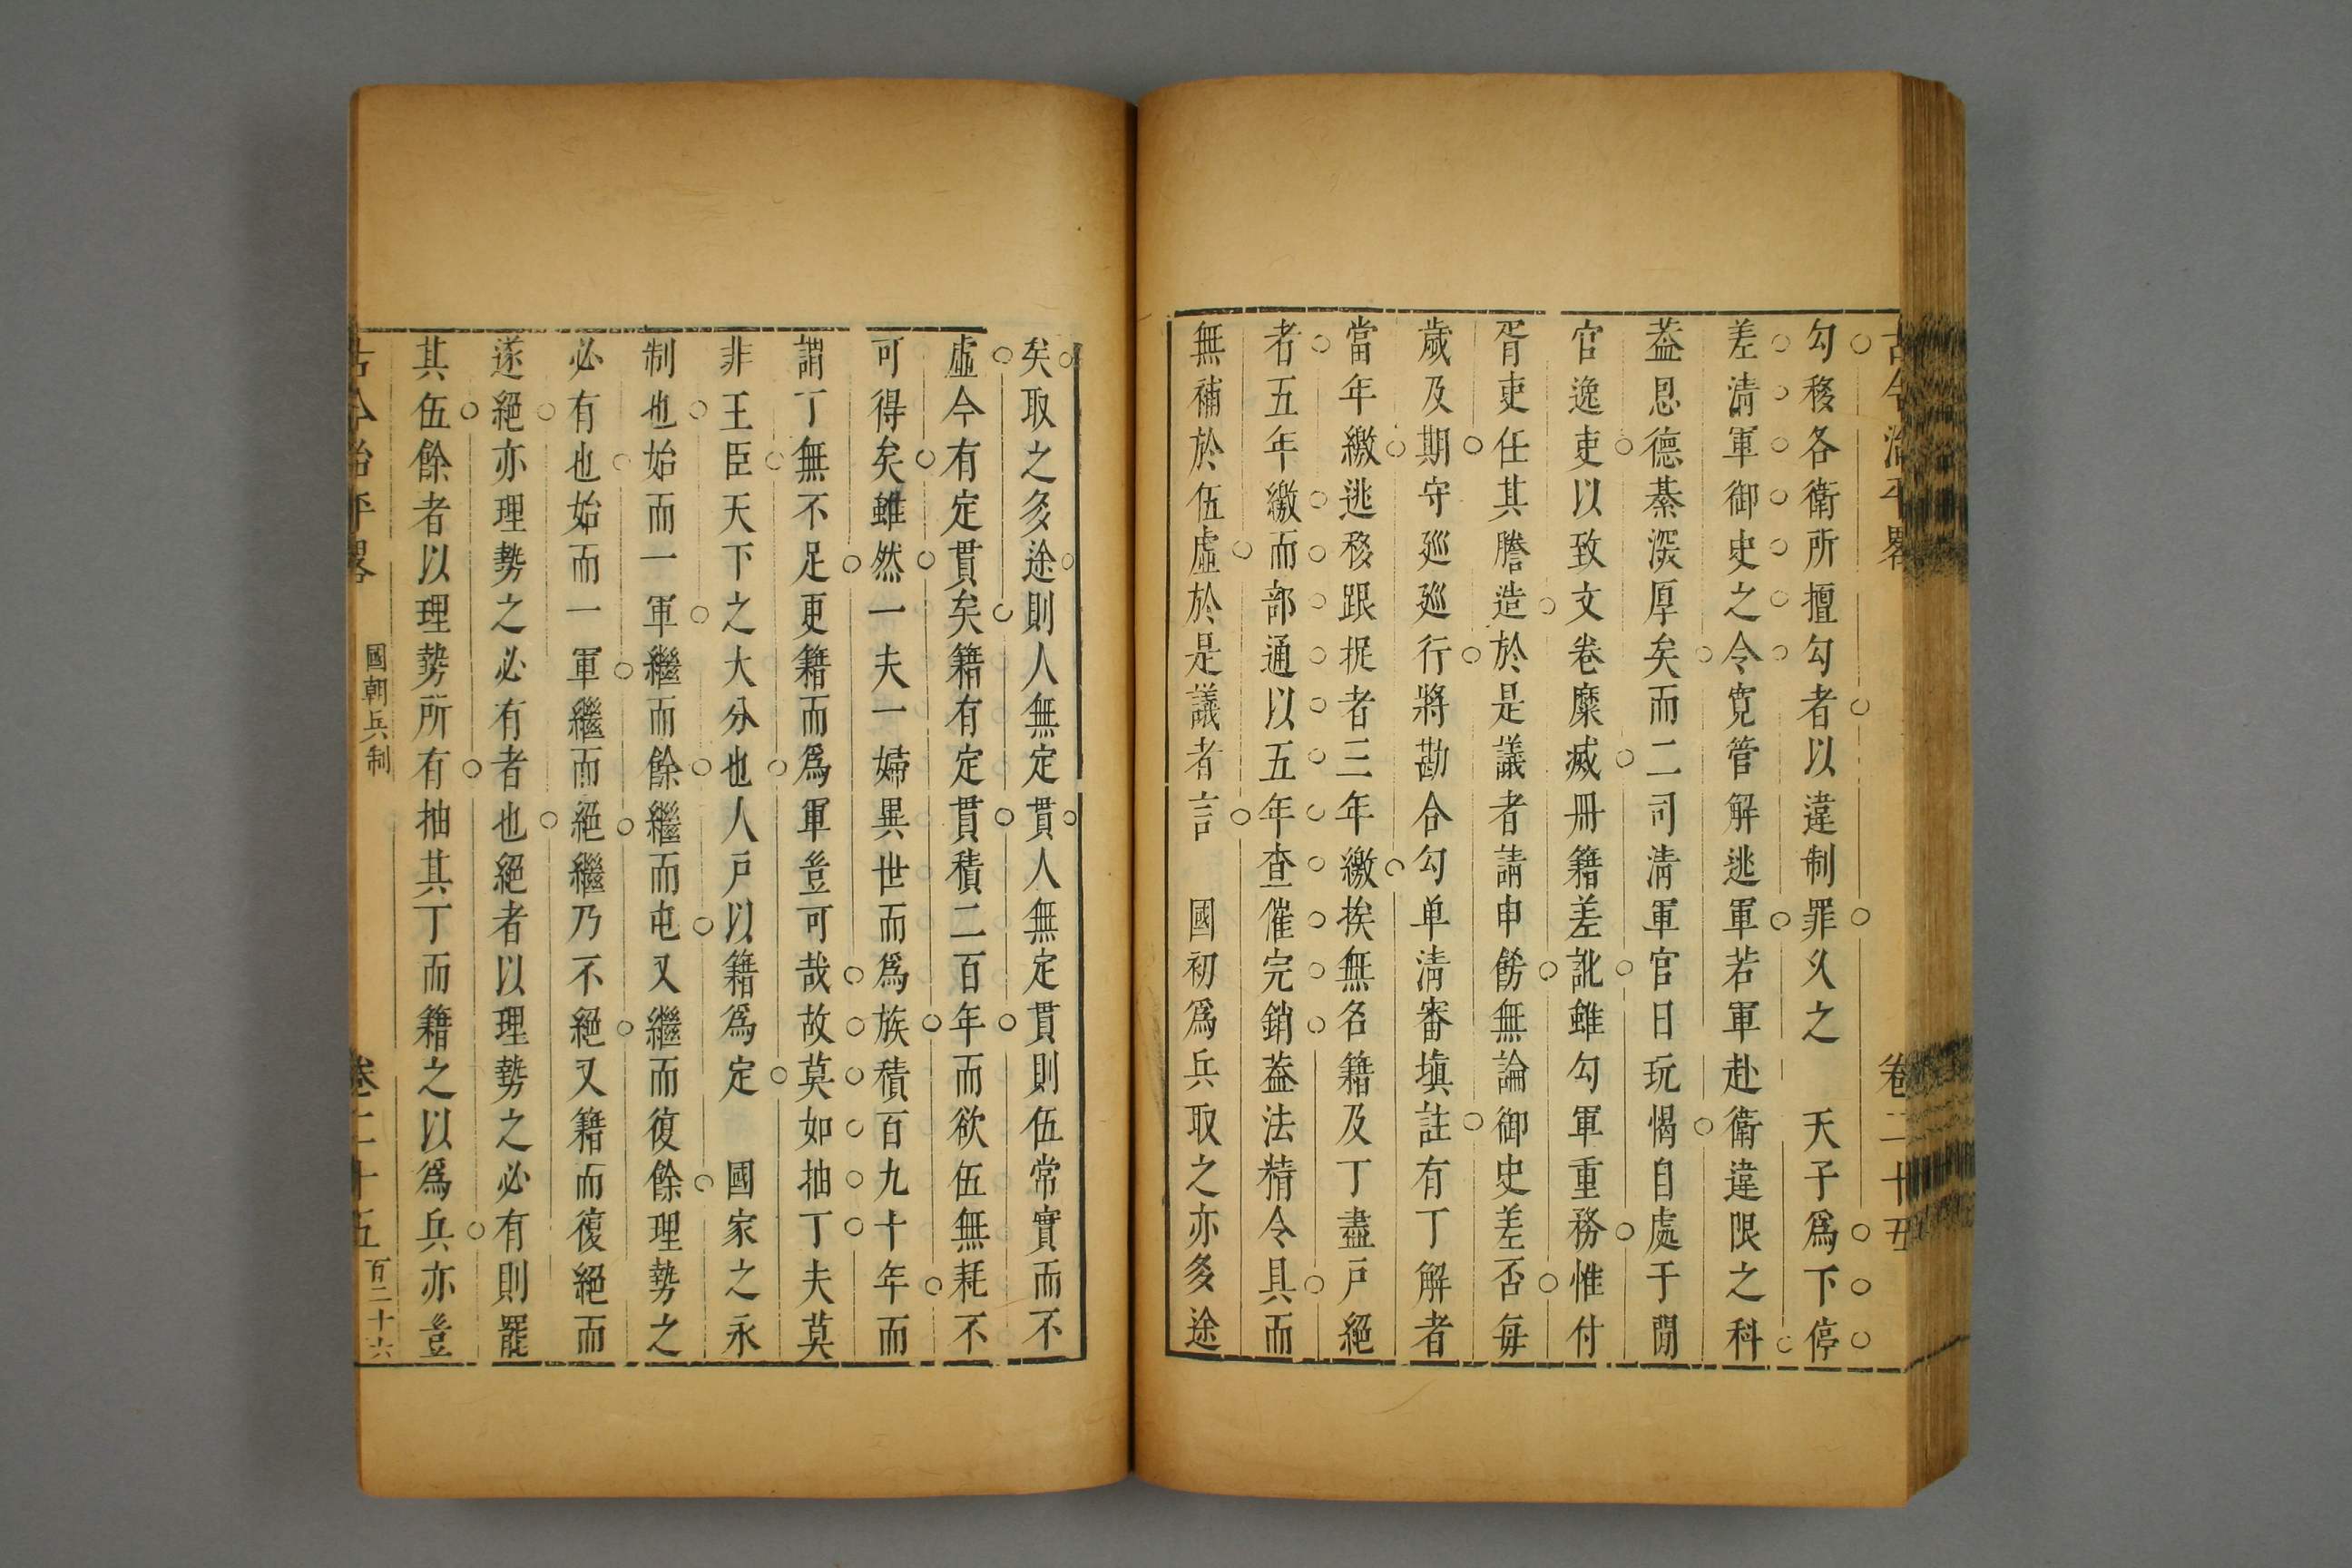 古今治平畧 卷二十五
勾移各衛所擅勾者以違制罪久之 天子爲下停
差清軍御史之令寬管解逃軍若軍赴衛違限之科
葢恩德綦深厚矣而二司清軍官日玩愒自處于閒
官逸吏以致文卷糜滅冊籍差訛雖勾軍重務惟付
胥吏任其謄造於是議者請申飭無論御史差否每
歲及期守廵廵行將勘合勾单清審塡註有丁解者
當年繳逃移跟捉者三年繳挨無名籍及丁盡戸絕
者五年繳而部通以五年查催完銷葢法精令具而
無補於伍虛於是議者言 國初爲兵取之亦多途
矣取之多途則人無定貫人無定貫則伍常實而不
虛今有定貫矣籍有定貫積二百年而欲伍無耗不
可得矣雖然一夫一婦異世而爲族積百九十年而
謂丁無不足更籍而爲軍豈可哉故莫如抽丁夫莫
非王臣天下之大分也人戸以籍爲定 國家之永
制也始而一軍繼而餘繼而屯又繼而復餘理勢之
必有也始而一軍繼而絕繼乃不絕又籍而復絕而
遂絕亦理勢之必有者也絕者以理勢之必有則罷
其伍餘者以理勢所有抽其丁而籍之以爲兵亦豈
古今治平畧 國朝兵制 卷二十五 百二十六